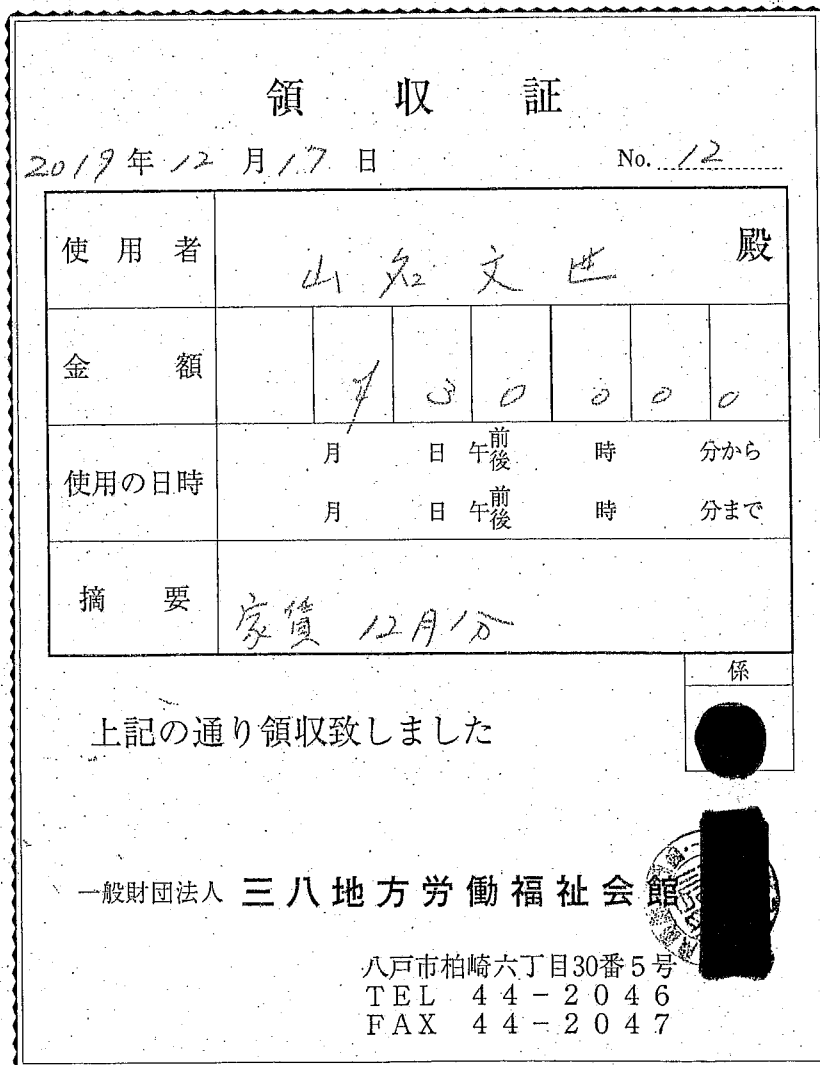 領収証
2019年12月17日 No. 12
使用者 山名文世 殿
金額 ¥30000
使用の日時 月 日 午前後 時 分から
月 日 午前後 時 分まで
摘要 家賃 12月分
係
上記の通り領収致しました
一般財団法人 三八地方労働福祉会館
八戸市柏崎六丁目30番5号
TEL 44-2046
FAX 44-2047